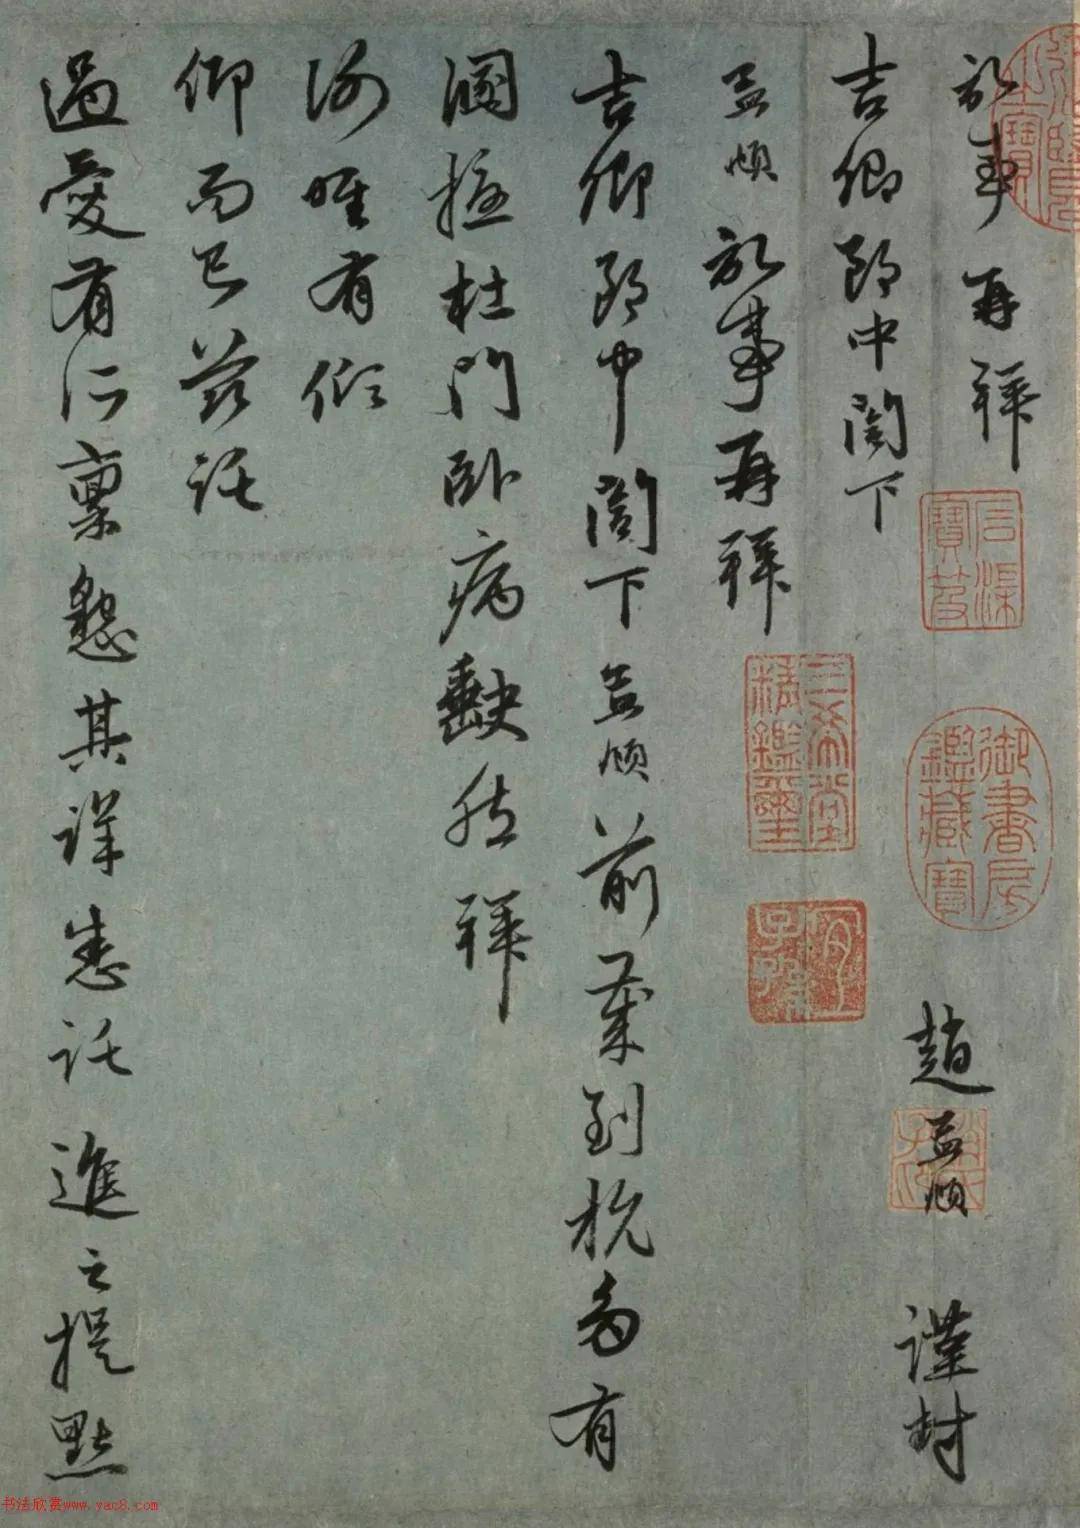 記事再拜
吉卿郎中閣下
趙孟頫
謹封
孟頫記事再拜
吉卿郎中閣下孟頫前歲到杭多有
溷擾杜門臥病缺然拜
謝唯有傾
仰而已茲託
過愛有所稟懇其詳悉託進之提點
石渠寶笈
御書房鑑藏寶
三希堂精鑑璽
宜子孫
书法欣赏www.yac8.com